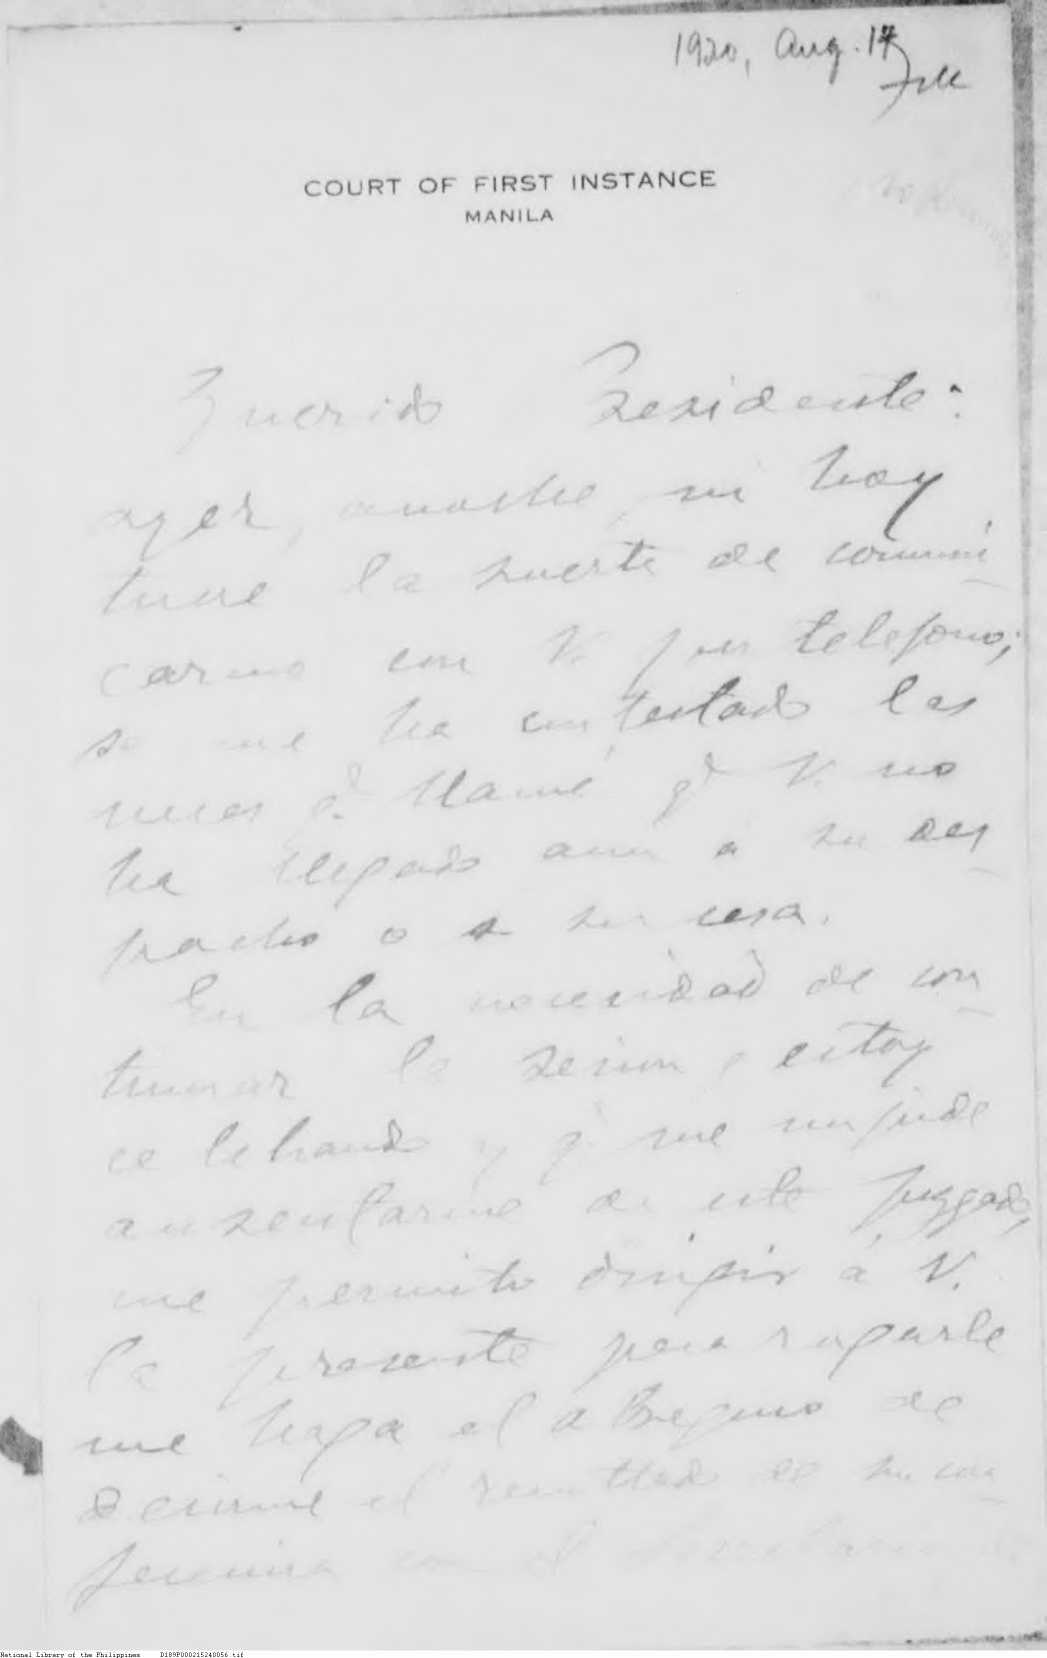 1920, Aug. 14
COURT OF FIRST INSTANCE
MANILA
Querido Presidente:
ayer, anoche, ni hoy
tuve la suerte de comuni
carme con V. por telefono;
se me ha contestado las
veces q. llamé q. V. no
ha llegado aun á su des
pacho o a su casa.
En la necesidad de con
tinuar la sesion q. estoy
celebrando y q. me impide
ausentarme de este juzgado,
me permito dirigir á V.
la presente para rogarle
me haga el obsequio de
decirme el resultado de su con
ferencia con el
National Library of the Philippines D189P000215240056.tif